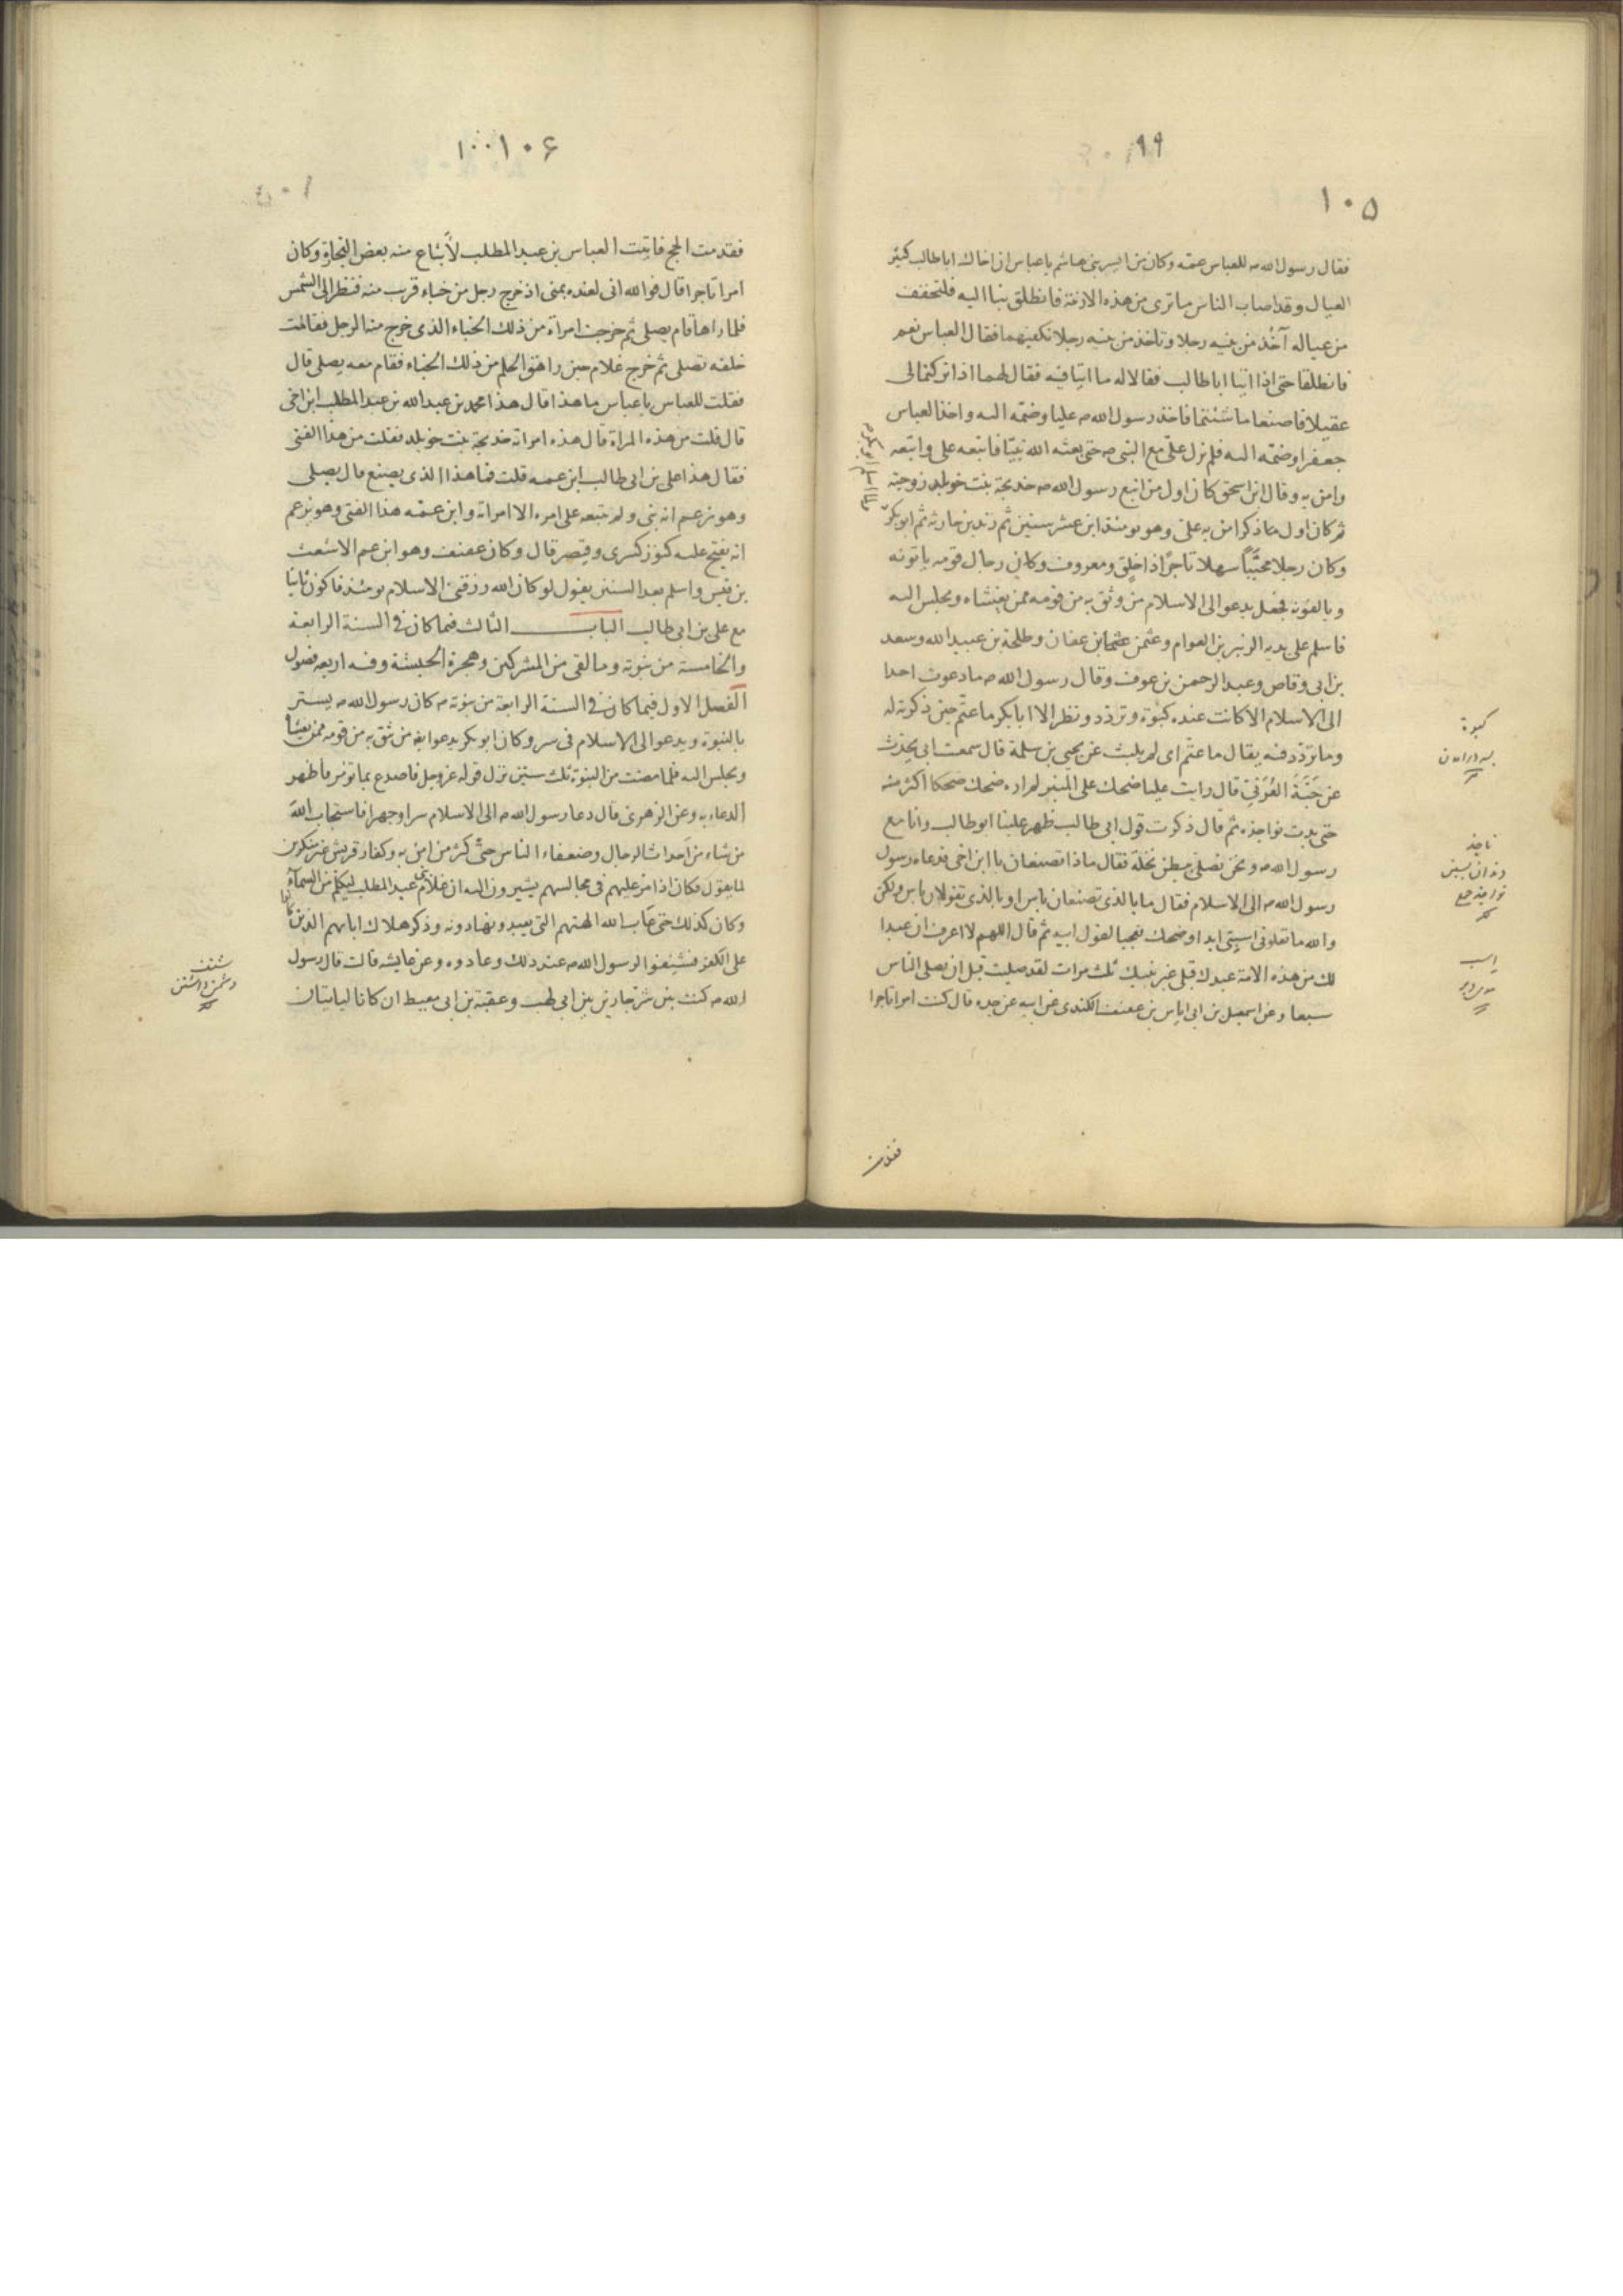 ٩٩
١٠٥
فقال رسول الله ص للعباس عمه وكان من ايسر بنى هاشم يا عباس ان اخاك ابا طالب كثير
العيال وقد اصاب الناس ما ترى من هذه الازمة فانطلق بنا اليه فلنخفف
من عياله آخذ من بنيه رجلا وتاخذ من بنيه رجلا نكفيهما فقال العباس نعم
فانطلقا حتى اذا اتيا ابا طالب فقالا له ما اتيا فيه فقال لهما اذا تركتما لى
عقيلا فاصنعا ما شئتما فاخذ رسول الله ص عليا وضمه اليه واخذ العباس
جعفرا وضمه اليه فلم نزل على مع النبى ص حتى بعثه الله نبيا فاتبعه على واتبعه
وامن به وقال ابن اسحق كان اول من اتبع رسول الله ص خديجة بنت خويلد زوجته
ثم كان اول ما ذكر امن به على وهو يومئذ ابن عشر سنين ثم زيد بن حارثه ثم ابو بكر
وكان رجلا محببا سهلا تاجرا ذا خلق ومعروف وكان رجال قومه ياتونه
ويالفونه فجعل يدعو الى الاسلام من وثق به من قومه ممن يغشاه ويجلس اليه
فاسلم على يديه الزبير بن العوام وعثمن بن عفان وطلحة بن عبيد الله وسعد
بن ابى وقاص وعبد الرحمن بن عوف وقال رسول الله ص ما دعوت احدا
الى الاسلام الا كانت عنده كبوة وتردد ونظر الا ابا بكر ما عتم حين ذكرته له
وما تردد فيه يقال ما عتم اى لم يلبث عن يحيى بن سلمة قال سمعت ابى يحدث
عن حبة العرنى قال رايت عليا ضحك على المنبر لم اره ضحك ضحكا اكثر منه
حتى بدت نواجذه ثم قال ذكرت قول ابى طالب ظهر علينا ابو طالب وانا مع
رسول الله ص ونحن نصلى ببطن نخلة فقال ماذا تصنعان يا ابن اخى فدعاه رسول
رسول الله ص الى الاسلام فقال ما بالذى تصنعان باس او بالذى تقولان باس ولكن
والله ما تعلونى استى ابدا وضحك تعجبا لقول ابيه ثم قال اللهم لا اعرف ان عبدا
لك من هذه الامة عبدك قبلى غير نبيك ثلث مرات لقد صليت قبل ان يصلى الناس
سبعا وعن اسمعيل بن ابى اياس بن عفيف الكندى عن ابيه عن جده قال كنت امرا تاجرا
كبوة
ناجذ
دندان پسين
نواجذ جمع
فقدمت
١٠٠
١٠۶
فقدمت الحج فاتيت العباس بن عبد المطلب لأبتاع منه بعض التجارة وكان
امرا تاجرا قال فوالله انى لعنده بمنى اذ خرج رجل من خباء قرب منه فنظر الى الشمس
فلما راها قام يصلى ثم خرجت امراة من ذلك الخباء الذى خرج منه الرجل فقامت
خلفه تصلى ثم خرج غلام حين راهق الحلم من ذلك الخباء فقام معه يصلى قال
فقلت للعباس يا عباس ما هذا قال هذا محمد بن عبد الله بن عبد المطلب ابن اخى
قال قلت من هذه المراة قال هذه امراته خديجة بنت خويلد فقلت من هذا الفتى
فقال هذا على بن ابى طالب ابن عمه قلت فما هذا الذى يصنع قال يصلى
وهو يزعم انه نبى ولم يتبعه على امره الا امراته وابن عمه هذا الفتى وهو يزعم
انه يفتح عليه كنوز كسرى وقيصر قال وكان عفيف وهو ابن عم الاشعث
بن قيس واسلم بعد السنين يقول لو كان الله رزقنى الاسلام يومئذ فاكون ثانيا
مع على بن ابى طالب الباب الثالث فيما كان فى السنة الرابعة
والخامسة من نبوته وما لقى من المشركين وهجرة الحبشة وفيه اربعه فصول
الفصل الاول فيما كان فى السنة الرابعة من نبوته ص كان رسول الله ص يستر
بالنبوة ويدعو الى الاسلام فى سر وكان ابو بكر يدعو ايضا من يثق به من قومه ممن يغشاه
ويجلس اليه فلما مضت من النبوة ثلث سنين نزل قوله عز وجل فاصدع بما تؤمر فاظهر
الدعاء به وعن الزهرى قال دعا رسول الله ص الى الاسلام سرا وجهرا فاستجاب الله
من شاء من احداث الرجال وضعفاء الناس حتى كثر من امن به وكفار قريش غير منكرين
لما يقول فكان اذا مر عليهم فى مجالسهم يشيرون اليه ان غلام بنى عبد المطلب ليكلم من السمآء
وكان كذلك حتى عاب الله الهتهم التى يعبدونها دونه وذكر هلاك ابائهم الذين كانوا
على الكفر فشنفوا لرسول الله ص عند ذلك وعادوه وعن عايشه قالت قال رسول
الله ص كنت بين شر جارين بين ابى لهب وعقبة بن ابى معيط ان كانا لياتيان
شنف
دشمن داشتن